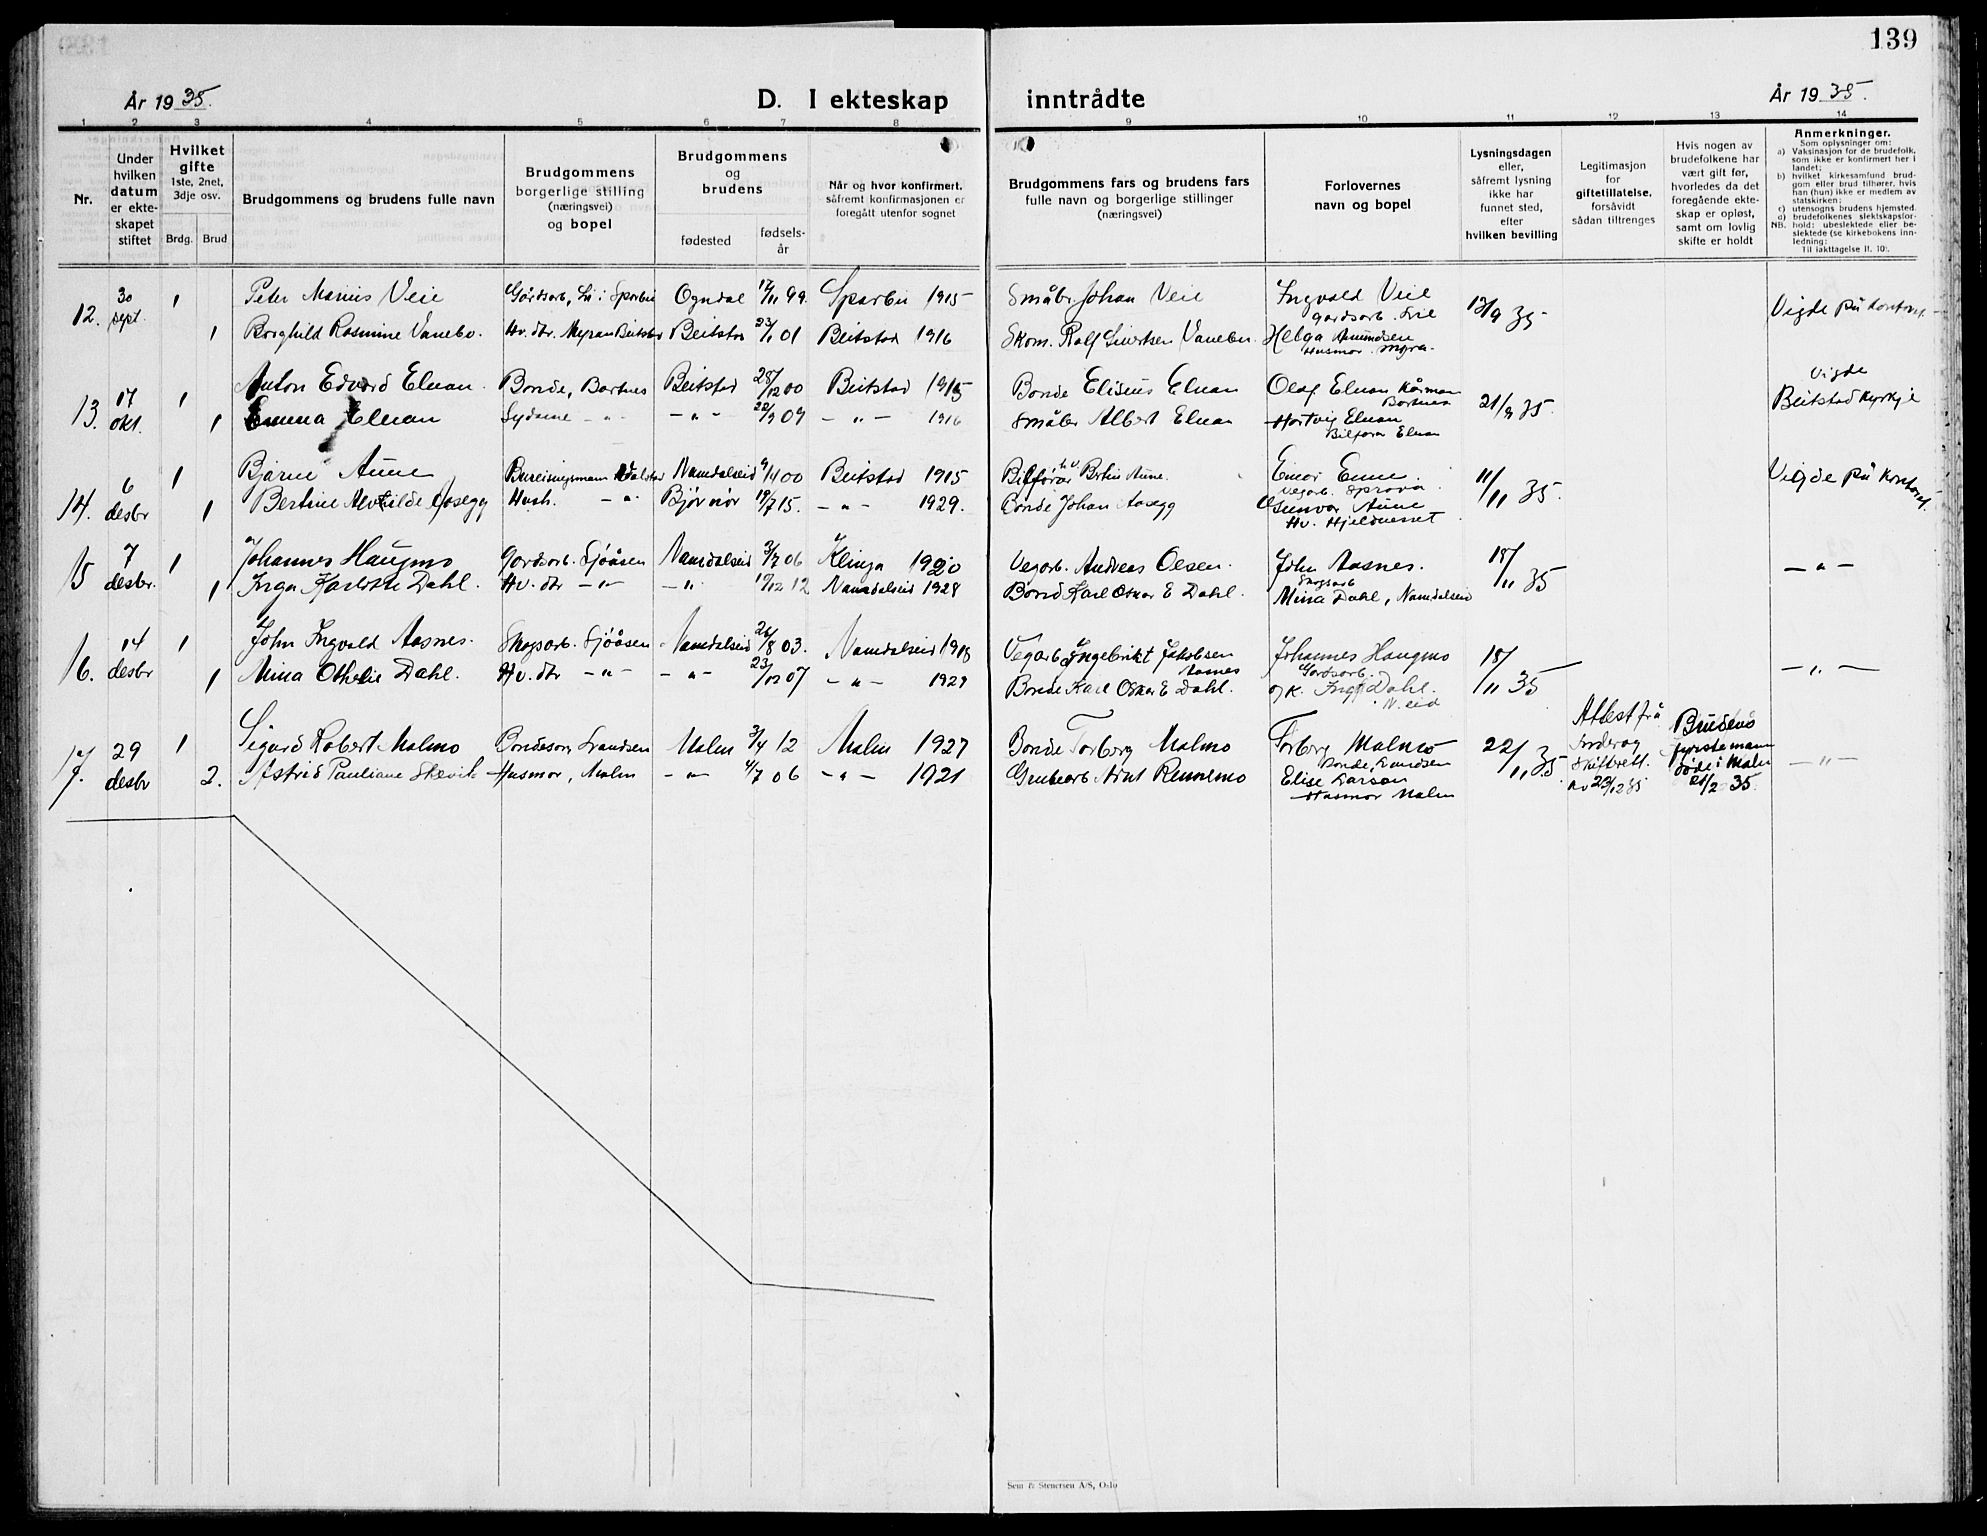 139
År 1935.
D. I ekteskap inntrådte
År 1935.
1 2 3 4 5 6 7 8 9 10 11 12 13 14
Nr.
Under hvilken datum er ekteskapet stiftet
Hvilket gifte 1ste, 2net, 3dje osv.
Brdg. Brud
Brudgommens og brudens fulle navn
Brudgommens borgerlige stilling (næringsvei) og bopel
Brudgommens og brudens
fødested
fødselsår
Når og hvor konfirmert, såfremt konfirmasjonen er foregått utenfor sognet
Brudgommens fars og brudens fars fulle navn og borgerlige stillinger (næringsvei)
Forlovernes navn og bopel
Lysningsdagen eller, såfremt lysning ikke har funnet sted, efter hvilken bevilling
Legitimasjon for giftetillatelse, forsåvidt sådan tiltrenges
Hvis nogen av brudefolkene har vært gift før, hvorledes da det foregående ekteskap er opløst, samt om lovlig skifte er holdt
Anmerkninger.
Som oplysninger om:
a) Vaksinasjon for de brudefolk, som ikke er konfirmert her i landet;
b) hvilket kirkesamfund brudgom eller brud tilhører, hvis han (hun) ikke er medlem av statskirken;
c) utensogns brudens hjemsted.
d) brudefolkenes slektskapsforhold: ubeslektede eller beslektede (se kirkebokens innledning:
NB.
Til iakttagelse II. 10).
12. 30 sept. 1 Peter Marius Veie Gårdsarb, Lei i Sparbu Ogndal 17/11 99. Sparbu 1915 Småbr. Johan Veie Ingvald Veie gårdsarb. 13/9 35 Vigde på kontoret
1 Borghild Rasmine Vanebo. Hv. dtr. Myran Beitstad Beitstad 23/1 01 Beitstad 1916 Skom. Rolf Sivertsen Vanebo. Helga Amundsen Husmor. Myra.
13. 17 okt. 1 Anton Edvard Elnan. Bonde, Bartnes Beitstad 28/12 00 Beitstad 1915 Bonde Elisæus Elnan Olaf Elnan Kårman Bartnes 21/9 35. Vigde Beitstad kyrkje
1 Emma Elnan Sydame - " - - " - 22/9 09 - " - 1916 Småbr Albert Elnan Hartvig Elnan Bilfører Elnan
14. 6 desbr 1 Bjarne Aune Bureisingsmann Namdalseid 9/4 00 Beitstad 1915 Bilfører Bertin Aune. Einar Aune. Vegarb. Sprova. 11/11 35. Vigde på kontoret.
1 Bertine Alvhilde Aasegg Hush. - " - Bjørnør 19/7 15. - " - 1929. Bonde Johan Aasegg Gunvor Aune Hv. Hjeldneset
15 7 desbr. 1 Johannes Haugmo Gårdsarb. Sjøåsen Namdalseid 3/7 06 Klinga 1920 Vegarb. Andreas Olsen. John Aasnes. Skogsarb 18/11 35 - " -
1 Inga Karlotte Dahl. Hv. dtr - " - - " - 17/12 12 Namdalseid 1928 Bonde Karl Oskar E Dahl. Mina Dahl, Namdalseid
16. 14 desbr 1 John Ingvald Aasnes. Skogsarb. Sjøåsen Namdalseid 26/8 03. Namdalseid 1918 Vegarb Ingebrikt Jakobsen Aasnes Johannes Haugmo Gårdsarb. 18/11 35 - " -
1 Mina Othelie Dahl. Hv. dtr - " - - " - 23/12 07 - " - 1921 Bonde Karl Oskar E Dahl. og K. Inga Dahl. N.eid
17. 29 desbr 1 Sigurd Robert Malmo Bondeson, Strandsen Malm 3/4 12 Malm 1927 Bonde Torberg Malmo Torberg Malmo Bonde 22/11 35. Attest frå Inderøy Skifterett. av 23/12 35 Brudens fyrste mann døde i Malm 21/2 35. - " -
2. Astrid Pauliane Skevik Husmor, Malm - " - 4/7 06 - " - 1921 Grubearb Arnt Rennemo Elise Larsen Husmor Malm
Sem & Stenersen A/S, Oslo